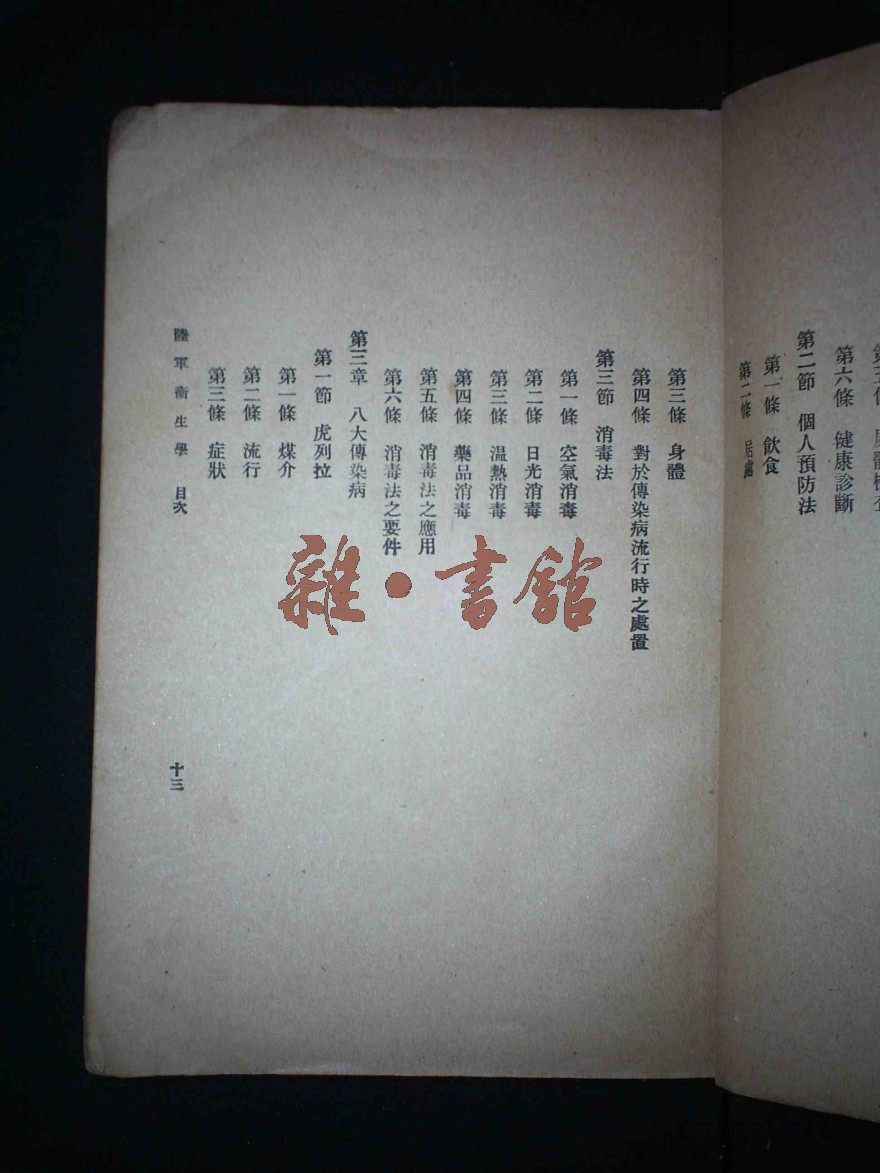 第六條　健康診斷
第二節　個人預防法
第一條　飲食
第二條　居處
第三條　身體
第四條　對於傳染病流行時之處置
第三節　消毒法
第一條　空氣消毒
第二條　日光消毒
第三條　温熱消毒
第四條　藥品消毒
第五條　消毒法之應用
第六條　消毒法之要件
第三章　八大傳染病
第一節　虎列拉
第一條　煤介
第二條　流行
第三條　症狀
陸軍衛生學　目次
十三
雜·書館